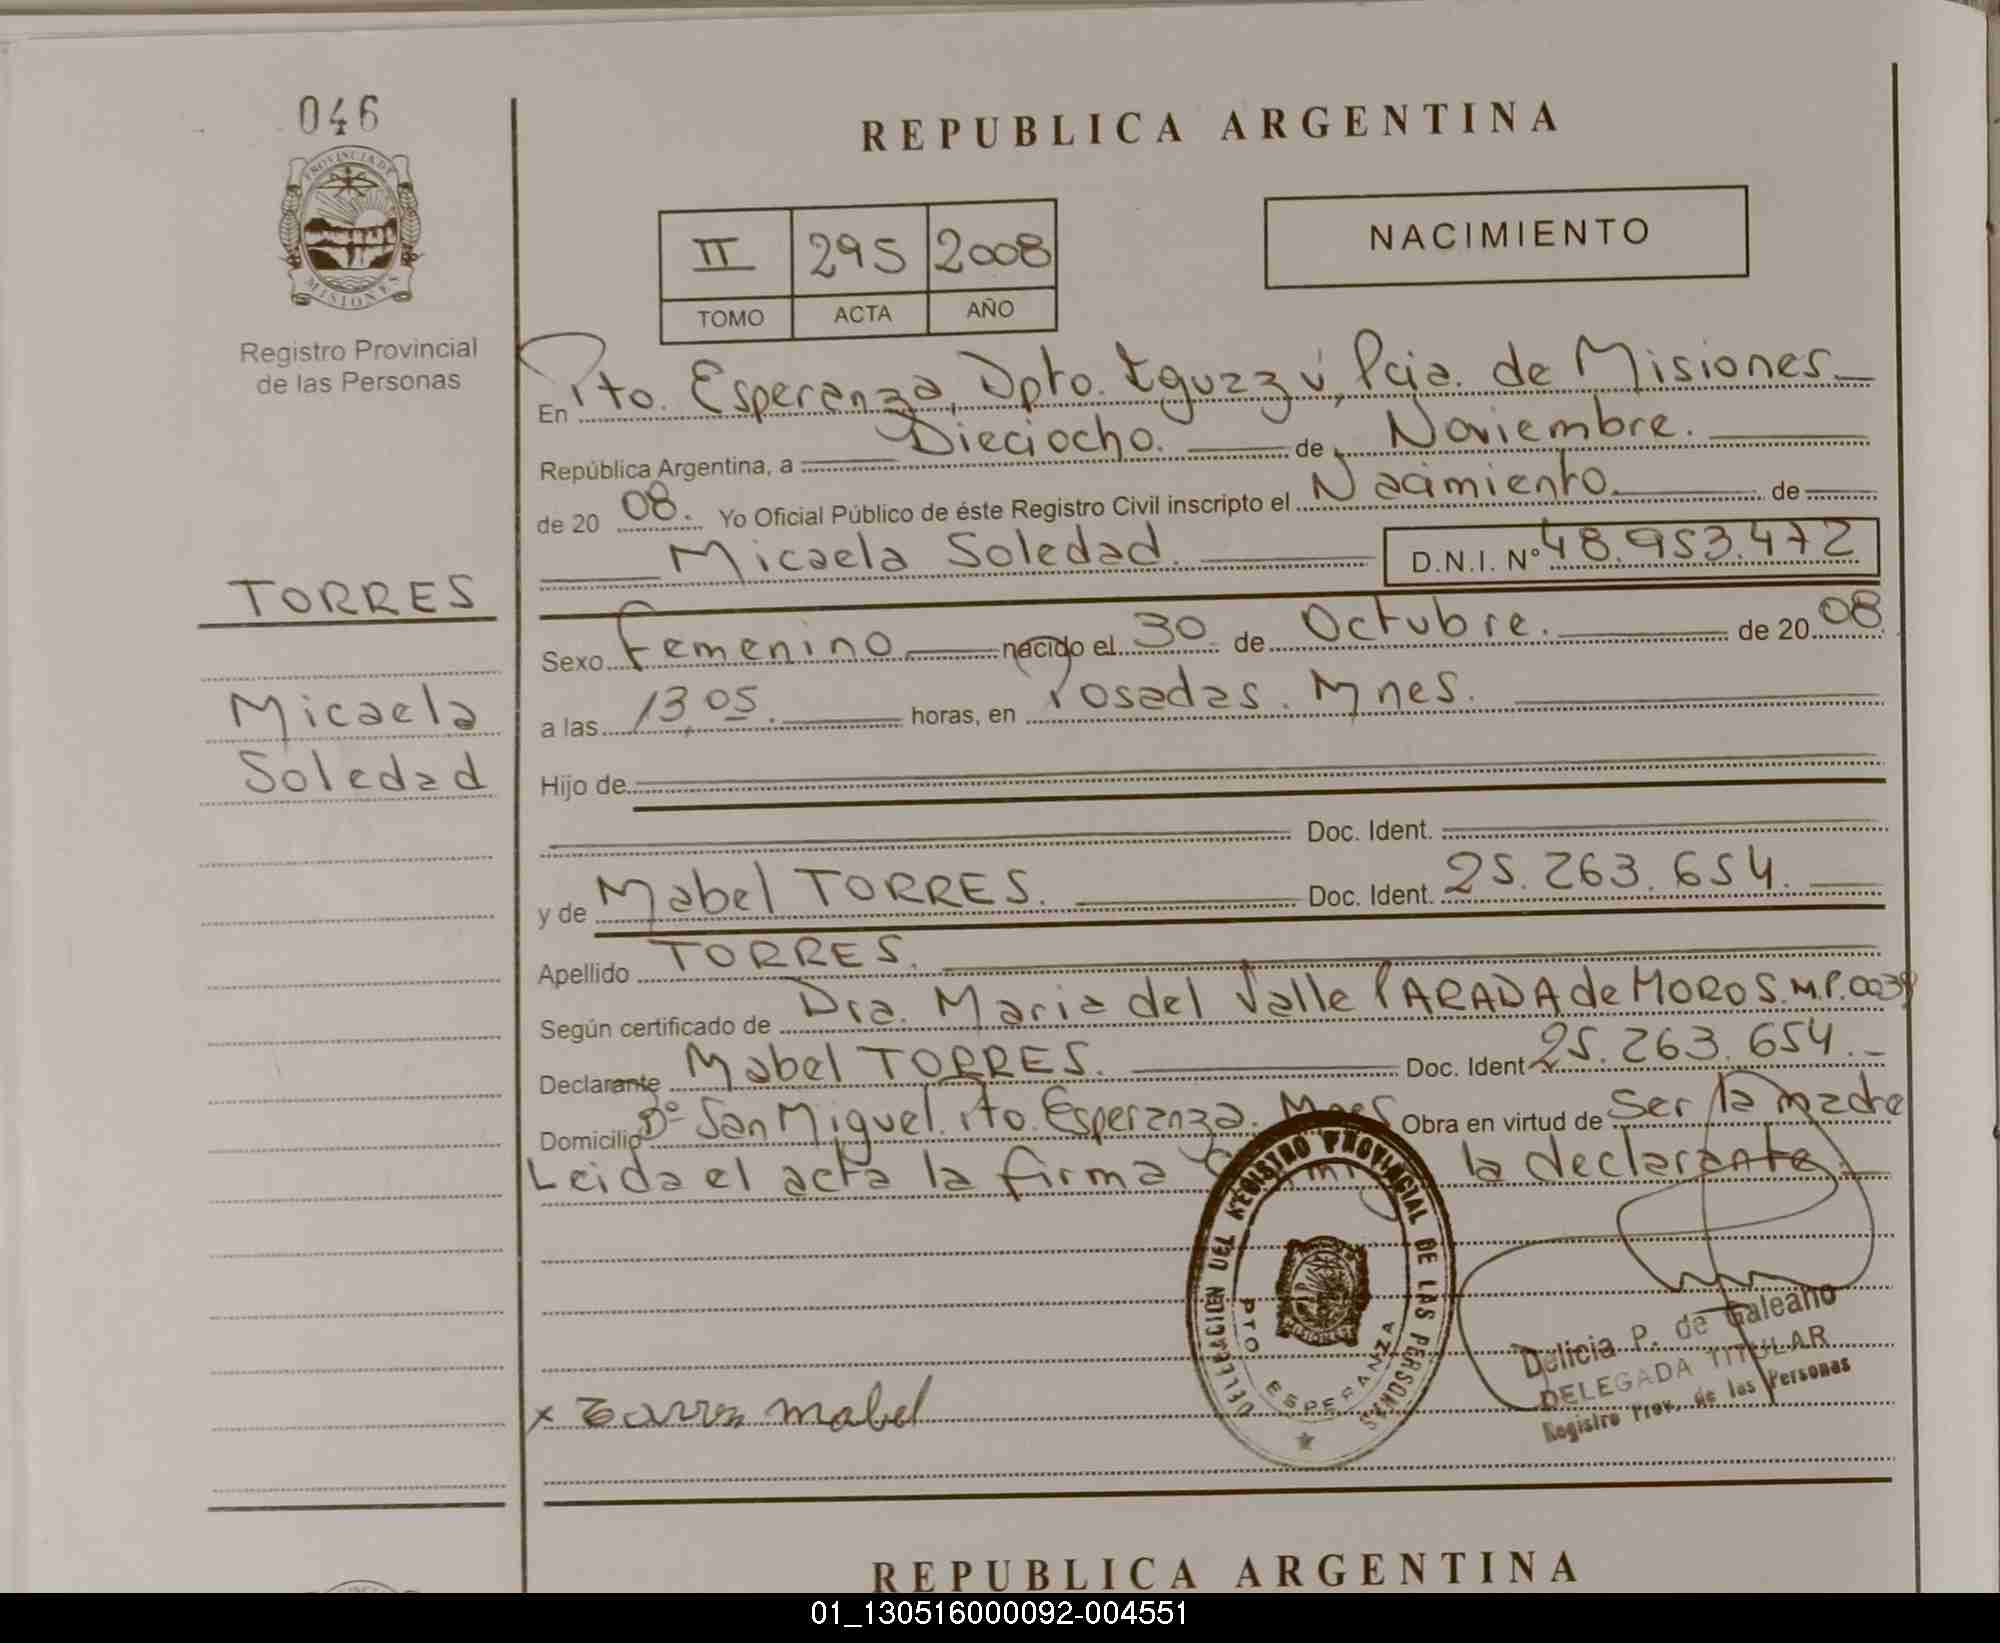 046
PROVINCIA DE
MISIONES
Registro Provincial
de las Personas
TORRES
Micaela
Soledad
REPUBLICA ARGENTINA
II 295 2008
TOMO ACTA AÑO
NACIMIENTO
En Pto. Esperanza, Dpto. Iguazú, Pcia. de Misiones
República Argentina, a Dieciocho. de Noviembre.
de 20 08. Yo Oficial Público de éste Registro Civil inscripto el Nacimiento de
Micaela Soledad. D.N.I. Nº 48.953.472
Sexo Femenino nacido el 30 de Octubre. de 20 08
a las 13,05. horas, en Posadas. Mnes.
Hijo de
Doc. Ident.
y de Mabel TORRES. Doc. Ident. 25.263.654.
Apellido TORRES.
Según certificado de Dra. Maria del Valle PARADA de MOROS. M.P.
Declarante Mabel TORRES. Doc. Ident 25.263.654.-
Domicilio Bº San Miguel. Pto. Esperanza. Mnes Obra en virtud de Ser la madre
Leida el acta la firma la declarante
DELEGACION DEL REGISTRO PROVINCIAL DE LAS PERSONAS
PTO ESPERANZA
MISIONES
Delicia P. de Galeano
DELEGADA TITULAR
Registro Prov. de las Personas
x Torres mabel
REPUBLICA ARGENTINA
01_130516000092-004551